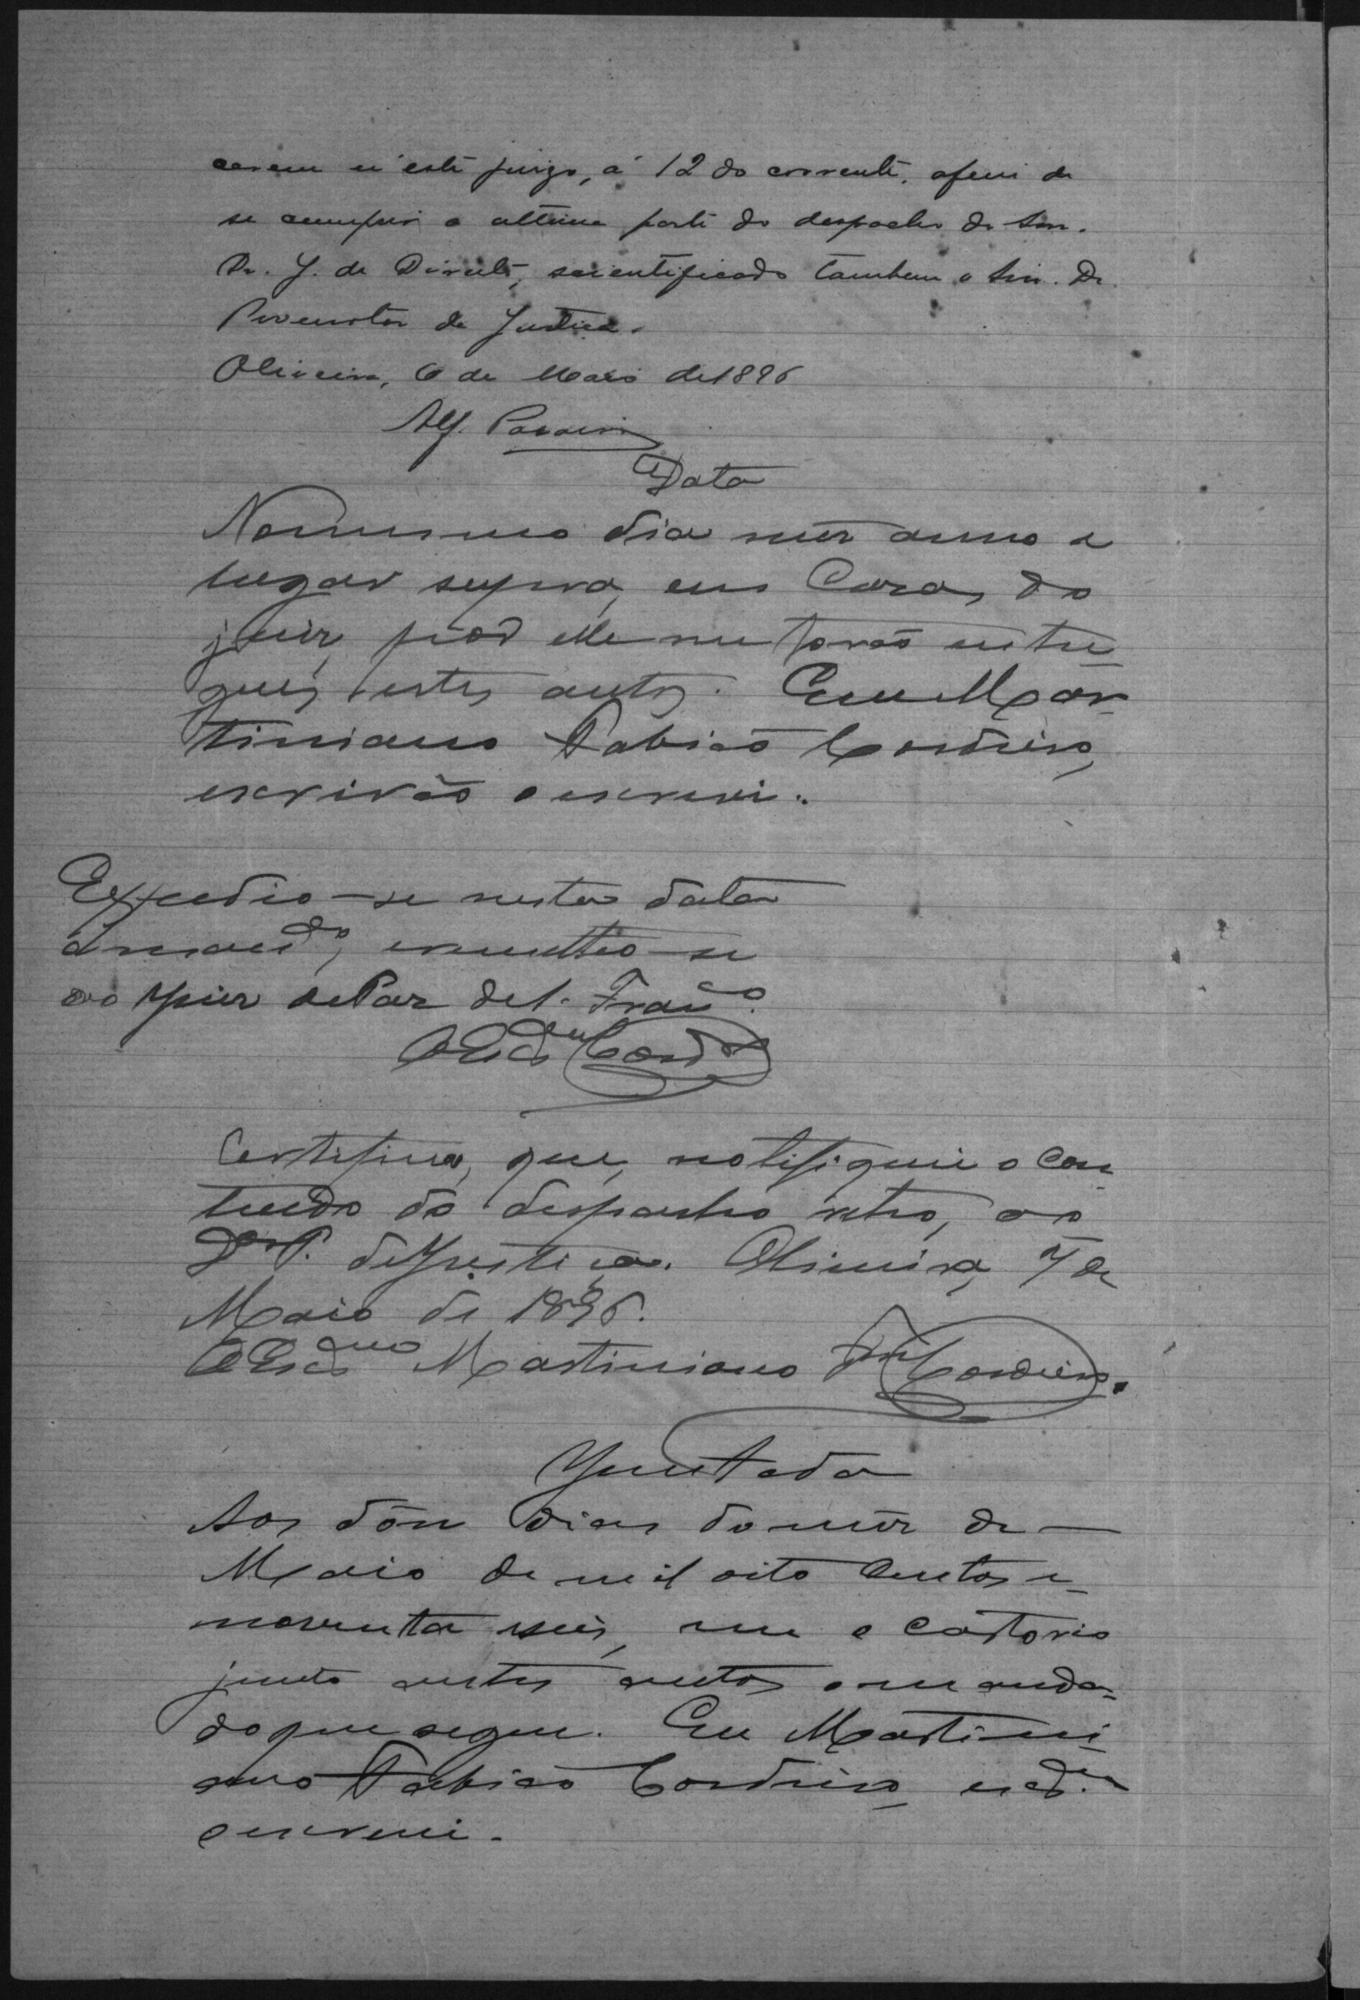 cerem n'este juizo, á 12 do corrente, afim de
se cumprir a ultima parte do despacho do Snr.
Dr. J. de Direito, scientificado tambem o Snr. Dr.
Promotor de Justiça.
Oliveira, 6 de Maio de 1896
Alf.
Data
No mesmo dia mez anno e
lugar supra, em Casa, do
juiz, por elle me forão entre-
gues, estes autos. Eu Mar-
tiniano Fabião Cordeiro,
escrivão o escrevi.
Expedio-se nesta data
o mand.do, e remetteo-se
ao Juiz de Paz de S. Fran.co
O Esc.
Certifico, que, notifiquei o con-
teudo do despacho retro, ao
Dr. P. de Justiça. Oliveira, 7 de
Maio de 1896.
O Esc. Martiniano Cordeiro.
Juntada
Aos doze dias do mez de
Maio de mil oito Centos e
noventa seis, em o cartorio
junto nestes autos o manda-
do que segue. Eu Martini-
ano Fabião Cordeiro, esc.
o escrevi.